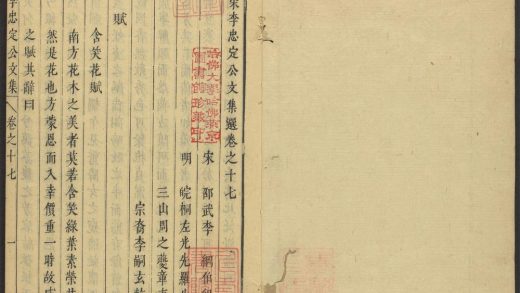 宋李忠定公文集選卷之十七
哈佛大學哈佛燕京
圖書館珍藏印
宋 邵武李 綱伯
明 皖桐左光先羅
三山周之夔章
宗裔李嗣玄
賦
含笑花賦
南方花木之美者莫若含笑綠葉素榮其
然是花也方蒙恩而入幸價重一時故
之賦其辭曰
李忠定公文集 卷之十七 一